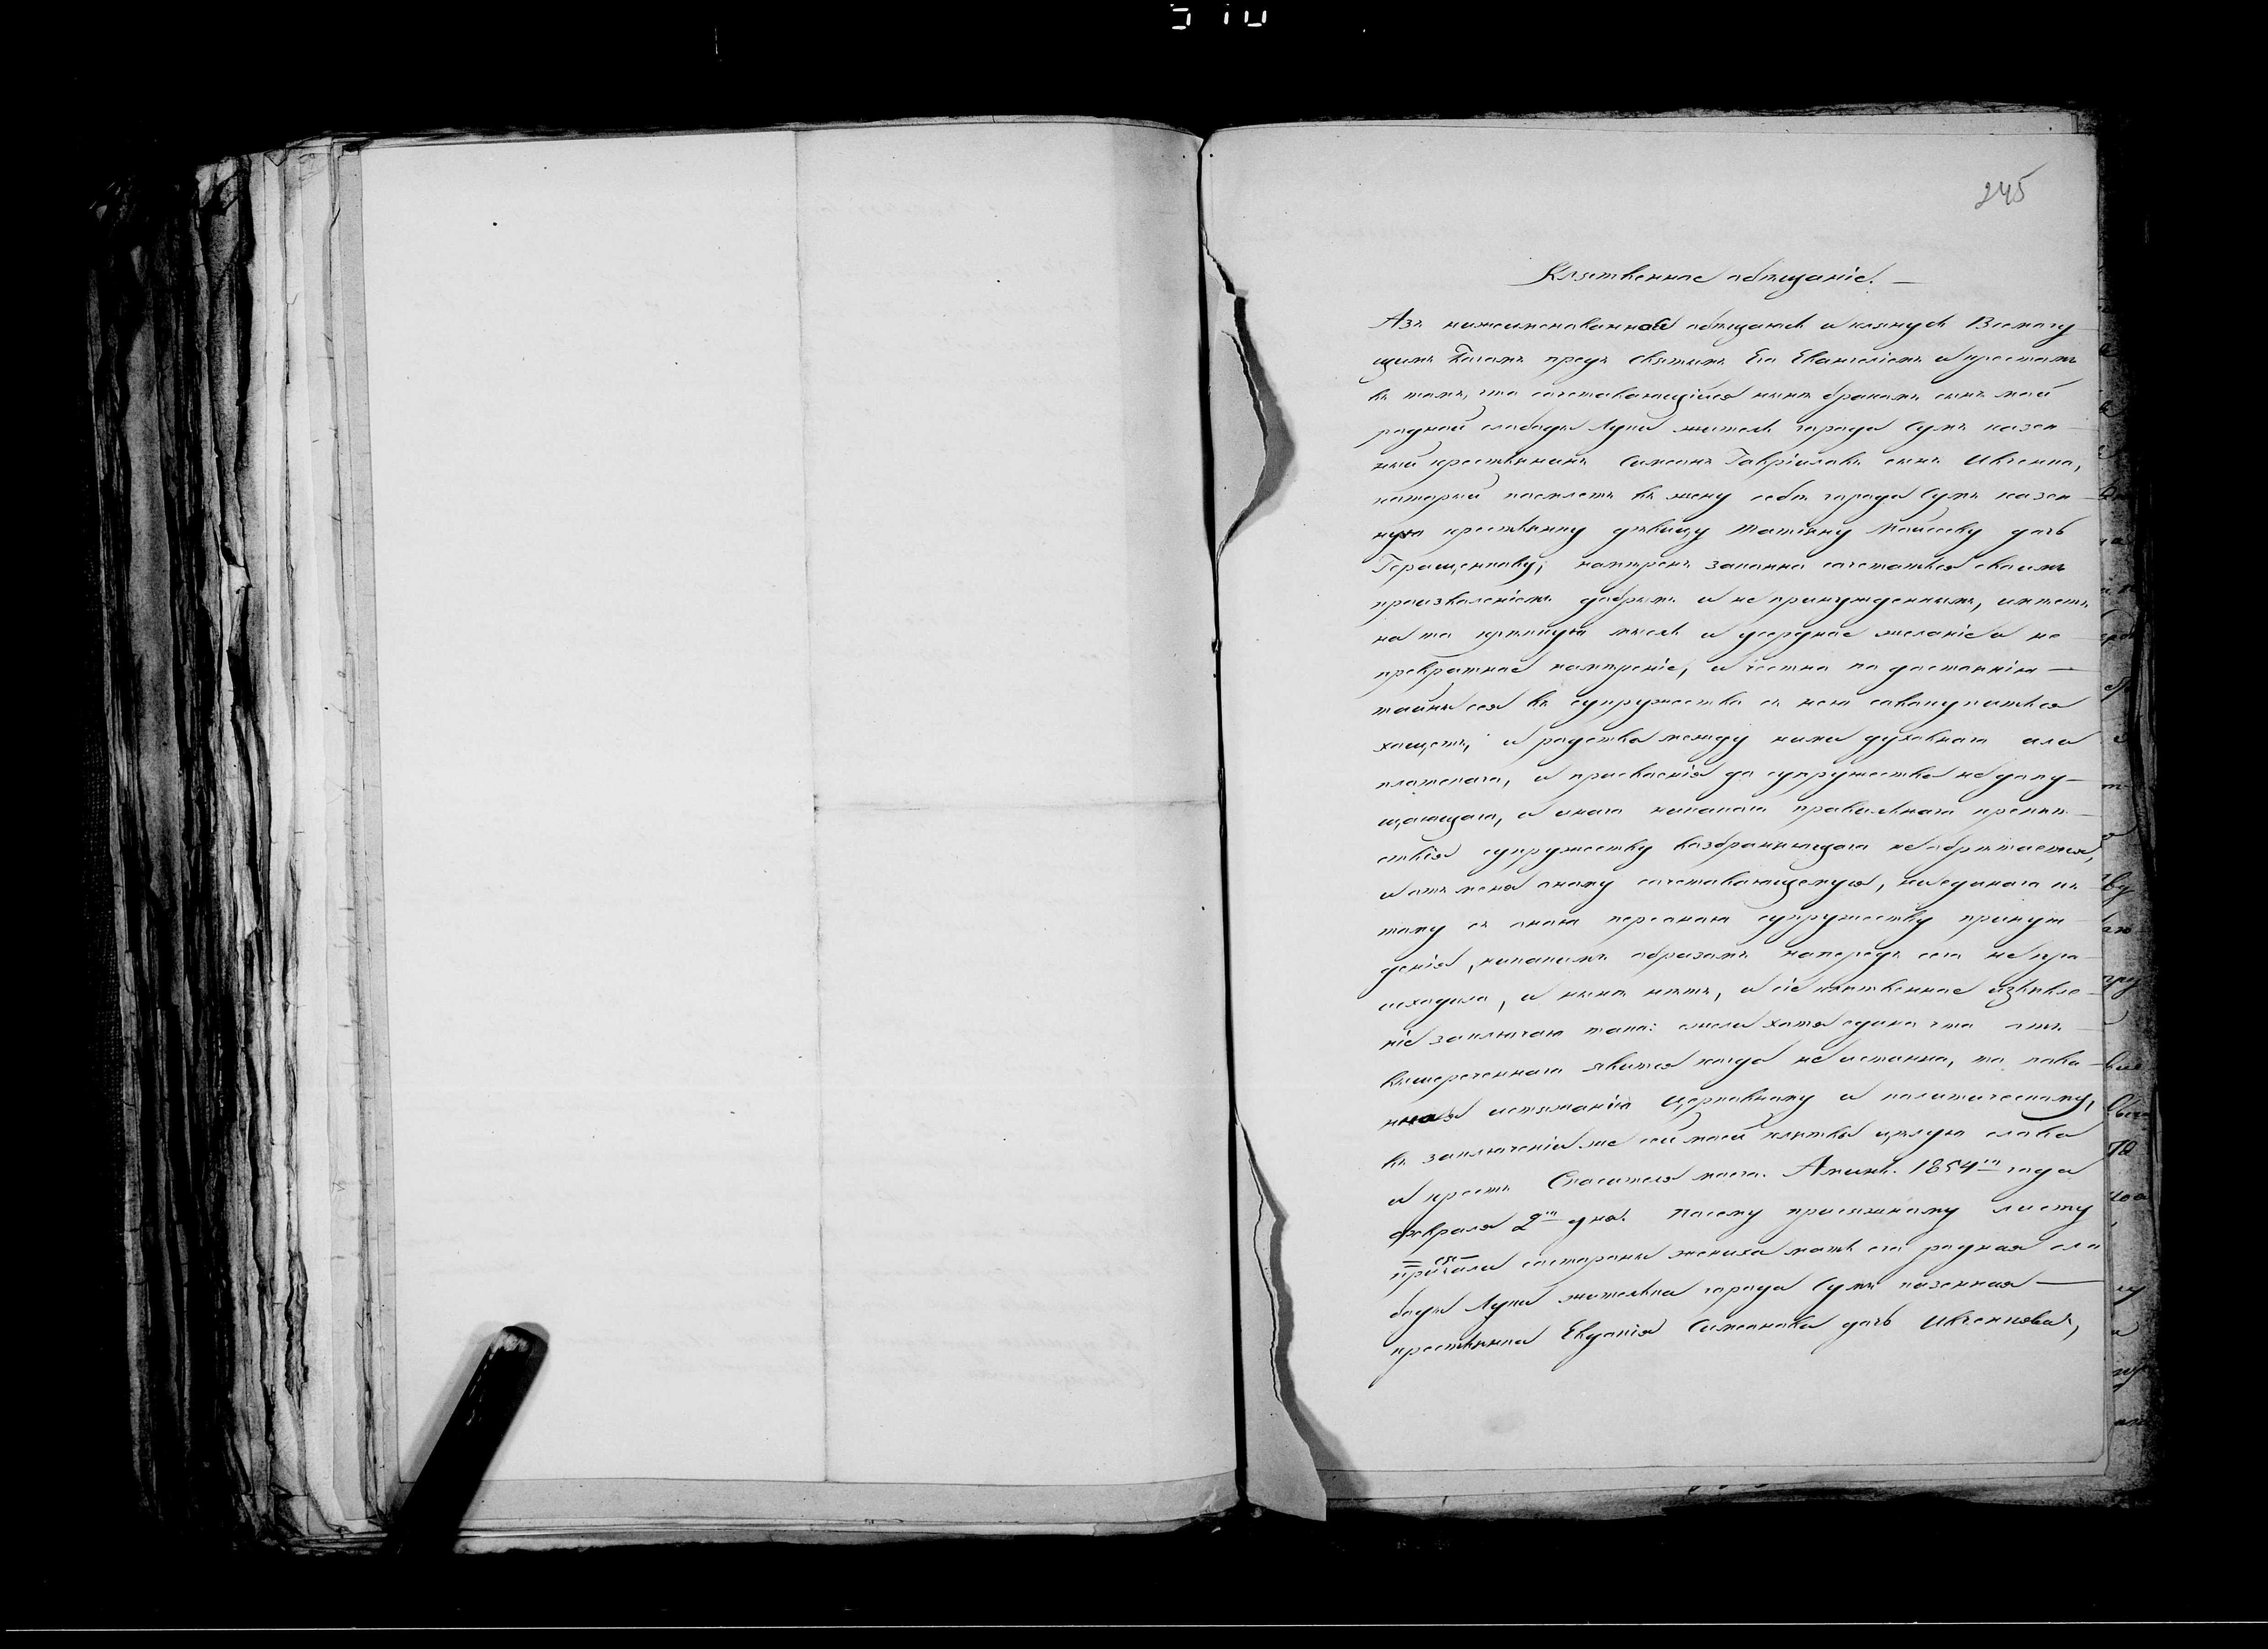 245
Клятвенное обѣщаніе. —
Азъ нижеименованной обѣщаюсь и клянусь Всемогу
щимъ Богомъ предъ Святымъ Его Евангеліемъ и крестомъ
въ томъ, что сочетавающійся нынѣ бракомъ сынъ мой
родной слободы Луки житель города Сумъ казен
ный крестьянинъ Симеонъ Гавріиловъ сынъ Ивченко,
который поемлетъ въ жену себѣ города Сумъ казен
ную крестьянку дѣвицу Татіяну Моисееву дочь
Геращенкову; намѣренъ законно сочетаться своимъ
произволеніемъ добрымъ и не принужденнымъ, имѣетъ
на то крѣпкую мысль и усердное желаніе и не
превратное намѣреніе, и честно по достоинію —
тайны сея въ супружество съ нею совокупиться
хощетъ; и родства между ними духовнаго или
плотскаго, и присвоенія до супружества не допу—
щающаго, и инаго никакого правильнаго препят—
ствія супружеству возбраняющаго не обрѣтается,
и отъ меня оному сочетавающемуся, ни единаго къ
тому съ оною персоною супружеству принуж
денія, никакимъ образомъ напередъ сего не про—
исходило, и нынѣ нѣтъ, и сіе клятвенное изъявле—
ніе заключаю тако: ежели хотя едино что отъ —
вышереченнаго явится когда не истинно, то пови—
нная истязанію Церковному и политическому,
въ заключеніи же сей моей клятвы цѣлую слова
и крестъ Спасителя моего. Аминь. 1854го года
февраля 2го дня. По сему присяжному листу
присягали со стороны жениха мать его родная сло
боды Луки жителька города Сумъ казенная —
крестьянка Евдокія Симеонова дочь Ивченкова,